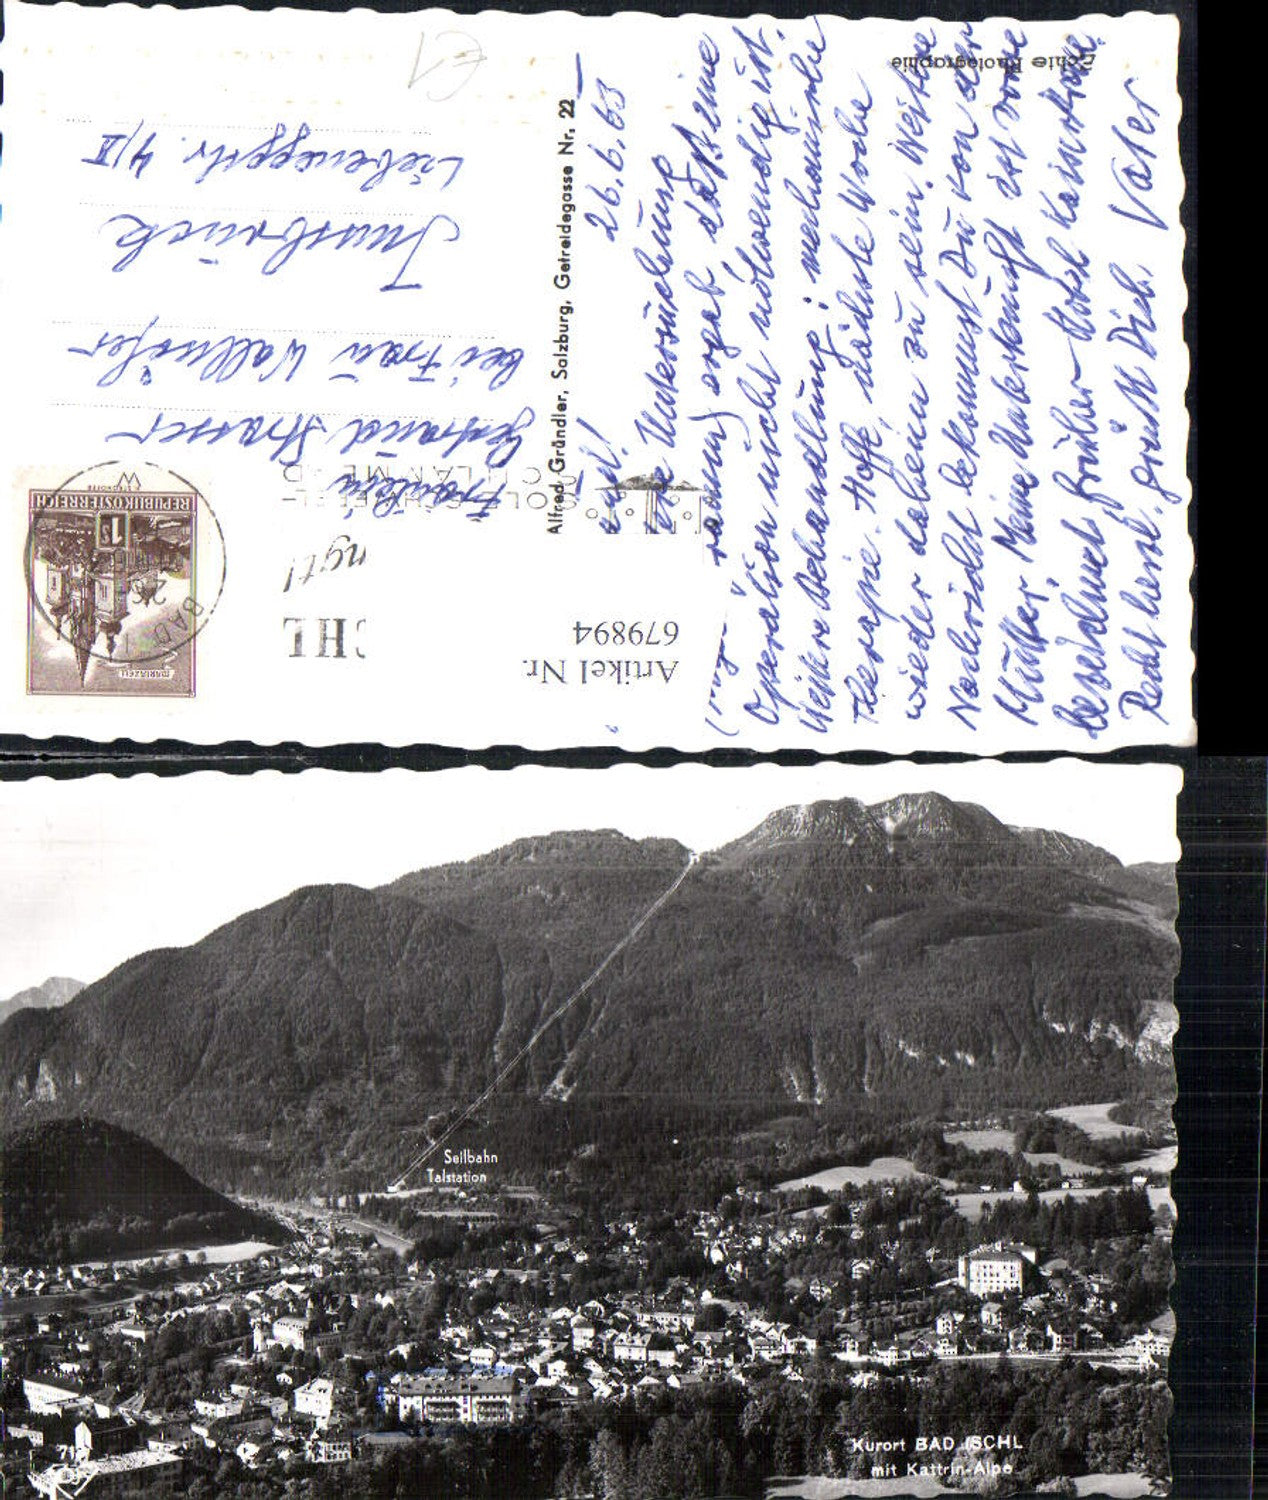 Echte Photographie
Alfred Gründler, Salzburg, Getreidegasse Nr. 22
Artikel Nr.
679894
CHL
ngt!
REPUBLIK ÖSTERREICH
1 S
MARIAZELL
BAD I
26.6.63
Die Untersuchung
ergab, daß eine
Operation nicht notwendig ist.
Weitere Behandlung: mechanische
Therapie. Hoffe, nächste Woche
wieder daheim zu sein. Weitere
Nachricht bekommst Du von der
Mutter. Meine Unterkunft ist vorne
bezeichnet, früher Hotel Kaiserkrone.
Recht herzl. grüßt Dich Vater
Fräulein
Gertraud Strasser
bei Frau Wallnöfer
Innsbruck
Liebeneggstr. 4/II
€1
Seilbahn
Talstation
Kurort BAD ISCHL
mit Kattrin-Alpe